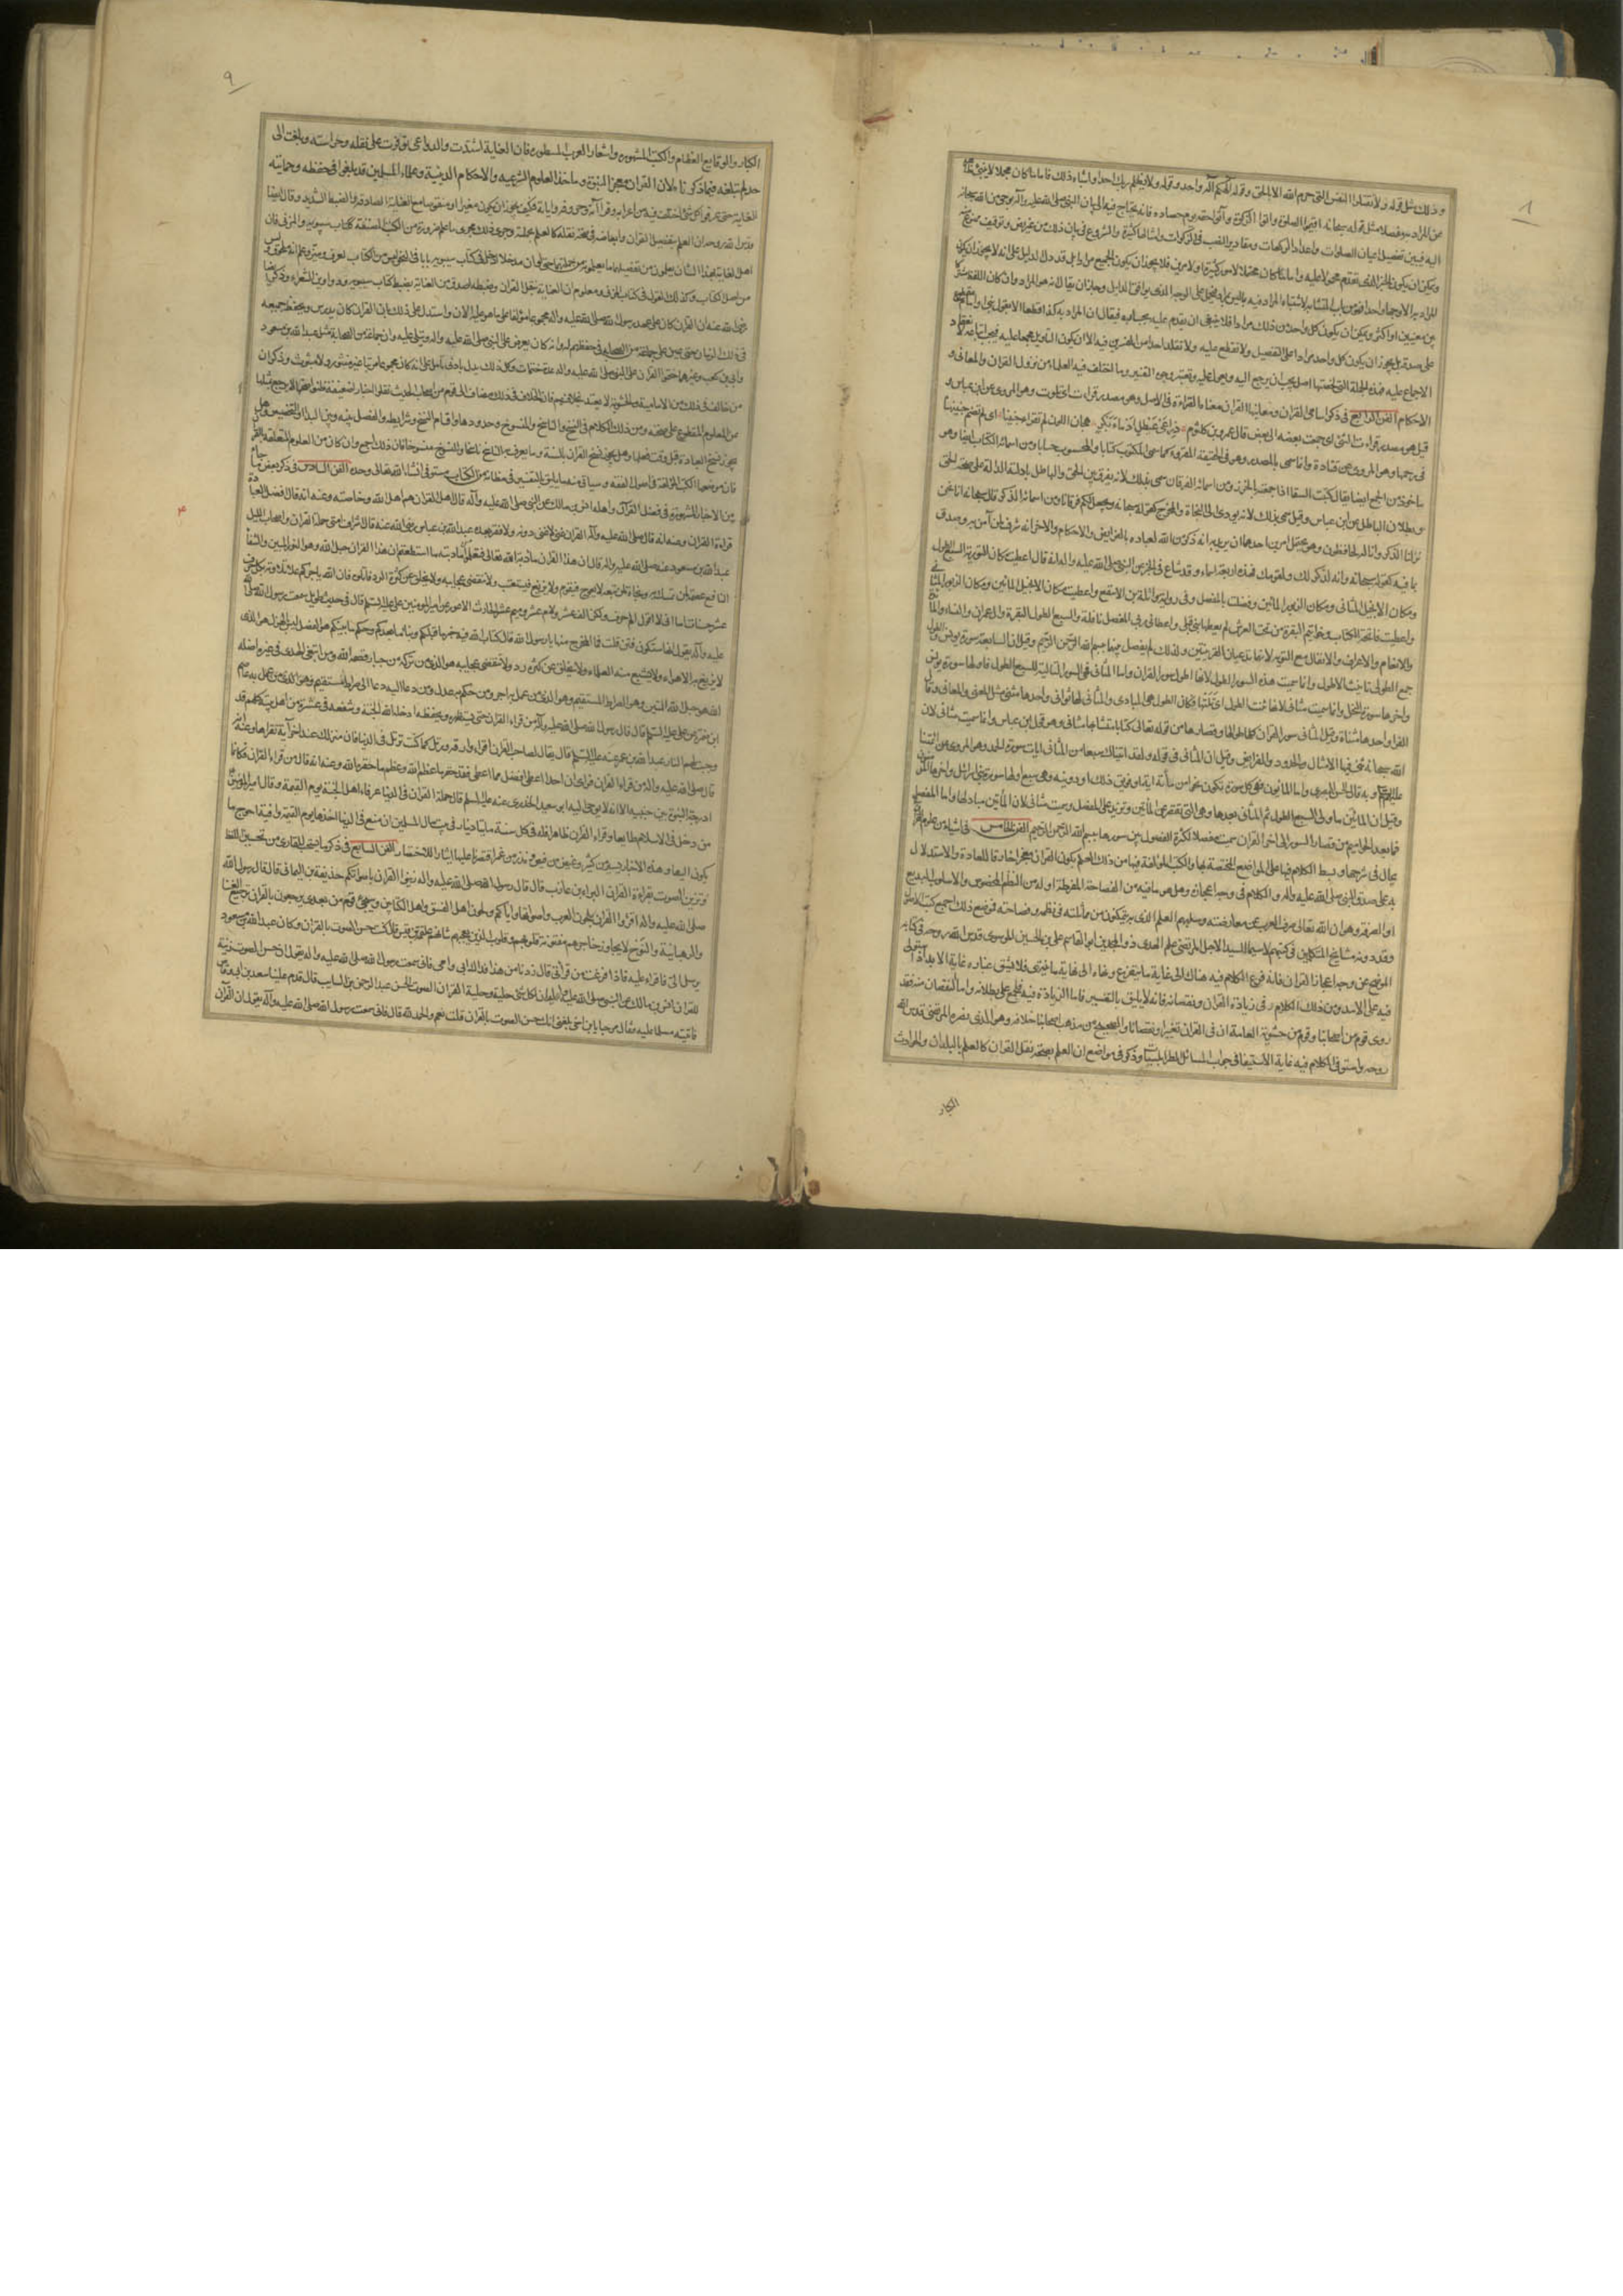 وذلك مثل قوله ولا تقتلوا النفس التى حرم الله الا بالحق وقوله الهكم اله واحد وقوله ولا يظلم ربك احدا واشباه ذلك فاما ما كان مجملا لا ينبئ ظاهره
عن المراد به مفصلا مثل قوله سبحانه اقيموا الصلوة واتوا الزكوة وآتوا حقه يوم حصاده فانه يحتاج فيه الى بيان النبى صلى الله عليه وآله بوحى من الله سبحانه
اليه فيبين تفصيل اعيان الصلوات واعداد الركعات ومقادير النصب فى الزكوات وامثالها كثيرة والشروع فى بيان ذلك من غير نص وتوقيف ممنوع منه
ويمكن ان يكون الخبر الذى تقدم محمولا عليه واما ما كان محتملا لامور كثيرة او لامرين فلا يجوز ان يكون الجميع مرادا بل قد دل الدليل على انه لا يجوز ان يكون
المراد به الا وجها واحدا فهو من باب المتشابه لاشتباه المراد منه بما ليس بمراد فيحمل على الوجه الذى يوافق الدليل وجاز ان يقال انه هو المراد وان كان اللفظ مشتركا
بين معنيين او اكثر ويمكن ان يكون كل واحد من ذلك مرادا فلا ينبغى ان يقدم عليه بجسارة فيقال ان المراد به كذا قطعا الا بقول نبى او امام مقطوع
على صدقه بل يجوز ان يكون كل واحد مرادا على التفصيل ولا نقطع عليه ولا نقلد احدا من المفسرين فيه الا ان يكون التأويل مجمعا عليه فيجب اتباعه لانعقاد
الاجماع عليه فهذه الجملة التى لخصتها اصل يجب ان يرجع اليه ويعول عليه ويعتبر وجوه التفسير وما اختلف فيه العلماء من نزول القران والمعانى و
الاحكام الفن الرابع فى ذكر اسامى القران ومعانيها القران معناه القراءة فى الاصل وهو مصدر قرات اى تلوت وهو المروى عن ابن عباس و
قيل هو مصدر قرات الشئ اى جمعت بعضه الى بعض قال عمرو بن كلثوم
فى رحمها وهو المروى عن قتادة وانما سمى بالمصدر وهو فى الحقيقة المقروء كما سمى المكتوب كتابا والمحسوب حسابا ومن اسمائه الكتاب ايضا وهو
ماخوذ من الجمع ايضا يقال كتبت السقاء اذا جمعته بالخرز ومن اسمائه الفرقان سمى بذلك لانه يفرق بين الحق والباطل بادلته الدالة على صحة الحق
وبطلان الباطل عن ابن عباس وقيل سمى بذلك لانه يودى الى النجاة والمخرج كقوله سبحانه ويجعل لكم فرقانا ومن اسمائه الذكر قال سبحانه انا نحن
نزلنا الذكر وانا له لحافظون وهو يحتمل امرين احدهما ان يريد به انه ذكر من الله لعباده بالفرائض والاحكام والاخر انه شرف لمن آمن به وصدق
بما فيه كقوله سبحانه وانه لذكر لك ولقومك فهذه اربعة اسماء وقد شاع فى الخبر عن النبى صلى الله عليه وآله انه قال اعطيت مكان التورية السبع الطول
ومكان الانجيل المثانى ومكان الزبور المائين وفضلت بالمفصل وفى رواية واثلة بن الاسقع واعطيت مكان الانجيل المائين ومكان الزبور المثانى
واعطيت فاتحة الكتاب وخواتيم البقرة من تحت العرش لم يعطها نبى قبلى واعطانى ربى المفصل نافلة والسبع الطول البقرة وال عمران والنساء والمائدة
والانعام والاعراف والانفال مع التوبة لانهما تدعيان القرينتين ولذلك لم يفصل بينهما ببسم الله الرحمن الرحيم وقيل ان السابعة سورة يونس والطول
جمع الطولى تانيث الاطول وانما سميت هذه السور الطول لانها اطول سور القران واما المثانى فهى السور التالية للسبع الطول فاولها سورة يونس
واخرها سورة النحل وانما سميت مثانى لانها ثنت الطول اى تلتها فكان الطول هى المبادى والمثانى لها ثوانى وواحدها مثنى مثل المعنى والمعانى وقال
الفراء واحدها مثناة وقيل المثانى سور القران كلها طوالها وقصارها من قوله تعالى كتابا متشابها مثانى وهو قول ابن عباس وانما سميت مثانى لان
الله سبحانه ثنى فيها الامثال والحدود والفرائض وقيل ان المثانى فى قوله ولقد اتيناك سبعا من المثانى ايات سورة الحمد وهو المروى عن ائمتنا
عليهم السلم وبه قال الحسن البصرى واما المائون فهى كل سورة تكون نحوا من مأئة اية او فويق ذلك او دوينه وهى سبع اولها سورة بنى اسرائيل واخرها المؤمنون
وقيل ان المائين ما ولى السبع الطول ثم المثانى بعدها وهى التى تقصر عن المائين وتزيد على المفصل وسميت مثانى لان المائين مباد لها واما المفصل
فما بعد الحواميم من قصار السور الى اخر القران سميت مفصلا لكثرة الفصول بين سورها ببسم الله الرحمن الرحيم الفن الخامس فى اشياء من علوم القران
يحال فى شرحها وبسط الكلام فيها على المواضع المختصة بها والكتب المؤلفة فيها من ذلك العلم بكون القران معجزا خارقا للعادة والاستدلال
به على صدق النبى صلى الله عليه وآله والكلام فى وجه اعجازه وهل هو ما فيه من الفصاحة المفرطة او له من النظم المخصوص والاسلوب البديع
او الصرفة وهو ان الله تعالى صرف العرب عن معارضته وسلبهم العلم الذى به يتمكنون من مماثلته فى نظمه وفصاحته فموضع ذلك اجمع كتب الاصول
وقد دونه مشايخ المتكلمين فى كتبهم لا سيما السيد الاجل المرتضى علم الهدى ذو المجدين ابو القاسم على بن الحسين الموسوى قدس الله روحه فى كتابه
الموضح عن وجه اعجاز القران فانه فرع الكلام فيه هناك الى غاية ما يتفرع ونهاه الى نهاية ما ينتهى فلا يشق غباره غاية الابد اذ استولى
فيه على الامد ومن ذلك الكلام فى زيادة القران ونقصانه فانه لا يليق بالتفسير فاما الزيادة فيه فمجمع على بطلانه واما النقصان منه فقد
روى قوم من اصحابنا وقوم من حشوية العامة ان فى القران تغييرا ونقصانا والصحيح من مذهب اصحابنا خلافه وهو الذى نصره المرتضى قدس الله
روحه واستوفى الكلام فيه غاية الاستيفا فى جواب المسائل الطرابلسيات وذكر فى مواضع ان العلم بصحة نقل القران كالعلم بالبلدان والحوادث
الكبار
٩
الكبار والوقايع العظام والكتب المشهورة واشعار العرب المسطورة فان العناية اشتدت والدواعى توفرت على نقله وحراسته وبلغت الى
حد لم تبلغه فيما ذكرناه لان القران معجز النبوة وماخذ العلوم الشرعيه والاحكام الدينية وعلماء المسلمين قد بلغوا فى حفظه وحمايته
الغاية حتى عرفوا كل شئ اختلف فيه من اعرابه وقراآته وحروفه واياته فكيف يجوز ان يكون مغيرا او منقوصا مع العناية الصادقة والضبط الشديد وقال ايضا
قدس الله روحه ان العلم بتفصيل القران وابعاضه فى صحة نقله كالعلم بجملته وجرى ذلك مجرى ما علم ضرورة من الكتب المصنفة ككتاب سيبويه والمزنى فان
اهل العناية بهذا الشأن يعلمون من تفصيلهما ما يعلمونه من جملتهما حتى لو ان مدخلا ادخل فى كتاب سيبويه بابا فى النحو ليس من الكتاب لعرف وميز وعلم انه ملحق وليس
من اصل الكتاب وكذلك القول فى كتاب المزنى ومعلوم ان العناية بنقل القران وضبطه اصدق من العناية بضبط كتاب سيبويه ودواوين الشعراء وذكر ايضا
رضى الله عنه ان القران كان على عهد رسول الله صلى الله عليه وآله مجموعا مؤلفا على ما هو عليه الان واستدل على ذلك بان القران كان يدرس ويحفظ جميعه
فى ذلك الزمان حتى عين على جماعة من الصحابة فى حفظهم له وانه كان يعرض على النبى صلى الله عليه وآله ويتلى عليه وان جماعة من الصحابة مثل عبد الله بن مسعود
وابى بن كعب وغيرهما ختموا القران على النبى صلى الله عليه وآله عدة ختمات وكل ذلك يدل بادنى تامل على انه كان مجموعا مرتبا غير مبتور ولا مبثوث وذكر ان
من خالف فى ذلك من الامامية والحشوية لا يعتد بخلافهم فان الخلاف فى ذلك مضاف الى قوم من اصحاب الحديث نقلوا اخبارا ضعيفة ظنوا صحتها لا يرجع بمثلها
عن المعلوم المقطوع على صحته ومن ذلك الكلام فى النسخ والناسخ والمنسوخ وحدودها واقسام النسخ وشرايطه والفصل بينه وبين البداء والتخصيص وهل
يجوز نسخ العبادة قبل وقت فعلها وهل يجوز نسخ القران بالسنة وما يعرف به الناسخ ناسخا والمنسوخ منسوخا فان ذلك اجمع وان كان من العلوم المتعلقة بالقران
فان موضعها الكتب المؤلفة فى اصول الفقه وسياتى منه ما يليق بالتفسير فى مظانه من الكتاب مستوفى انشاء الله تعالى وحده الفن السادس فى ذكر بعض ما جاء
من الاخبار المشهورة فى فضل القرآن واهله انس بن مالك عن النبى صلى الله عليه وآله قال اهل القران هم اهل الله وخاصته وعنه انه قال افضل العبادة
قراءة القران وعنه انه قال صلى الله عليه وآله القران غنى لا غنى دونه ولا فقر بعده عبد الله بن عباس رضى الله عنه قال اشراف امتى حملة القران واصحاب الليل
عبد الله بن مسعود عنه صلى الله عليه وآله قال ان هذا القران مأدبة الله تعالى فتعلموا مأدبته ما استطعتم ان هذا القران حبل الله وهو النور المبين والشفاء
النافع عصمة لمن تمسك به ونجاة لمن تبعه لا يعوج فيقوم ولا يزيغ فيستعتب ولا تنقضى عجايبه ولا يخلق عن كثرة الرد فاتلوه فان الله ياجركم على تلاوته بكل حرف
عشر حسنات اما انى لا اقول الم حرف ولكن الف عشر ولام عشر وميم عشر الحارث الاعور عن امير المومنين على عليه السلم قال فى حديث طويل سمعت رسول الله صلى الله
عليه وآله يقول انها ستكون فتن قلت فما المخرج منها يا رسول الله قال كتاب الله فيه خبر ما قبلكم ونبأ ما بعدكم وحكم ما بينكم هو الفصل ليس بالهزل هو الذى
لا تزيغ به الاهواء ولا يشبع منه العلماء ولا يخلق عن كثرة رد ولا تنقضى عجايبه هو الذى من تركه من جبار قصمه الله ومن ابتغى الهدى فى غيره اضله
الله هو حبل الله المتين وهو الصراط المستقيم وهو الذى من عمل به اجر ومن حكم به عدل ومن دعا اليه دعا الى صراط مستقيم
قال قال رسول الله صلى الله عليه وآله من قراء القران حتى يستظهره ويحفظه ادخله الله الجنة وشفعه فى عشرة من اهل بيته كلهم قد
وجبت لهم النار عبد الله بن عمر عنه عليه السلم قال يقال لصاحب القران اقراء وارق ورتل كما كنت ترتل فى الدنيا فان منزلك عند اخر آية تقراها وعنه انه
قال صلى الله عليه وآله من قراء القران فراى ان احدا اعطى افضل مما اعطى فقد حقر ما عظم الله وعظم ما حقر الله وعنه انه قال من قراء القران فكانما
ادرجت النبوة بين جنبيه الا انه لا يوحى اليه ابو سعيد الخدرى عنه عليه السلم قال حملة القران فى الدنيا عرفاء اهل الجنة يوم القيمة وقال امير المؤمنين
من دخل فى الاسلام طايعا وقراء القران ظاهرا فله فى كل سنة مايتا دينار فى بيت مال المسلمين ان منع فى الدنيا اخذها يوم القيمة وافية احوج ما
يكون اليها وهذه الاخبار يسير من كثير وغيض من فيض ونزر من غمر اقتصرنا عليها ايثارا للاختصار الفن السابع فى ذكر ما يستحب للقارى من تحسين اللفظ
وتزيين الصوت بقراءة القران البراء بن عازب قال قال رسول الله صلى الله عليه وآله زينوا القران باصواتكم حذيفة بن اليمانى قال قال رسول الله
صلى الله عليه وآله اقرؤا القران بلحون العرب واصواتها واياكم ولحون اهل الفسق واهل الكتابين وسيجىء قوم من بعدى يرجعون بالقران ترجيع الغناء
والرهبانية والنوح لا يجاوز حناجرهم مفتونة قلوبهم وقلوب الذين يعجبهم شانهم علقمة بن قيس قال كنت حسن الصوت بالقران وكان عبد الله بن مسعود
يرسل الى فاقراء عليه فاذا فرغت من قراتى قال زدنا من هذا فداك ابى وامى فانى سمعت رسول الله صلى الله عليه وآله يقول ان حسن الصوت زينة
للقران انس بن مالك عن النبى صلى الله عليه وآله ان لكل شئ حلية وحلية القران الصوت الحسن عبد الرحمن بن السايب قال قدم علينا سعد بن ابى وقاص
فاتيته مسلما عليه فقال مرحبا يا ابن اخى بلغنى انك حسن الصوت بالقران قلت نعم والحمد لله قال فانى سمعت رسول الله صلى الله عليه وآله يقول ان القرآن